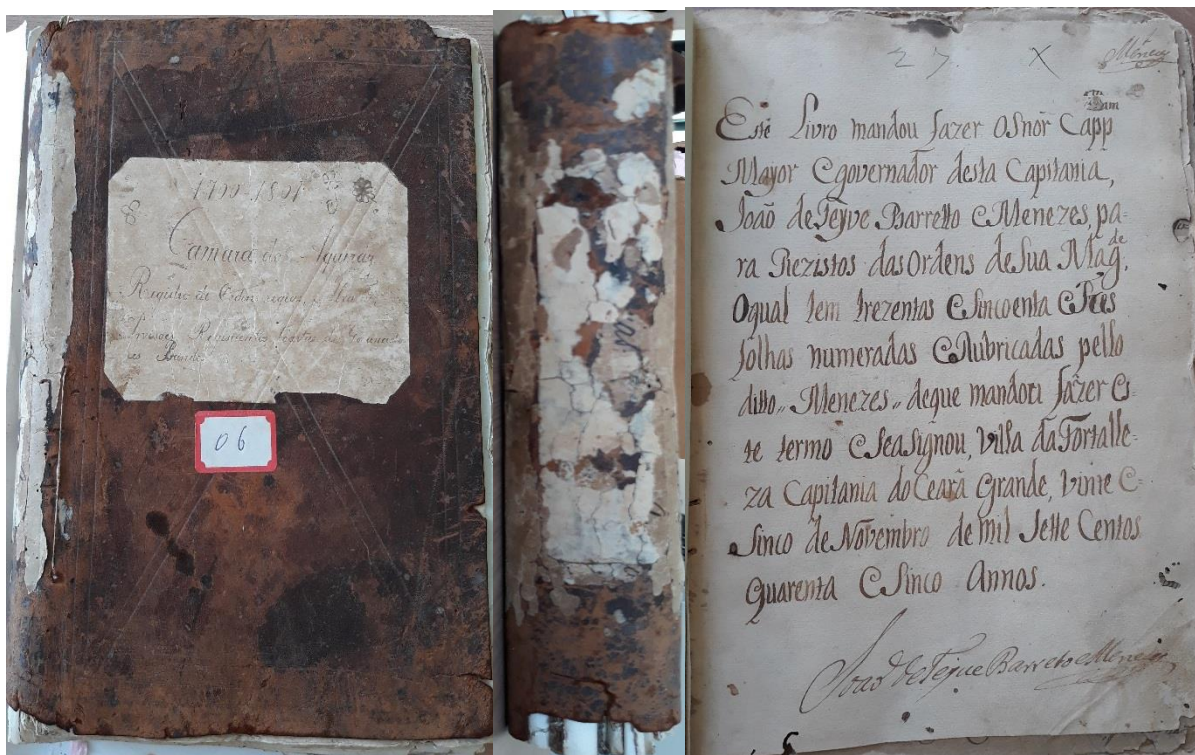 Camara do Aquiraz
06
27. X
Menezes
Este Livro mandou fazer oSnõr Capp
am
Mayor Egovernador desta Capitania,
João deTeyve Barretto EMenezes, pa-
ra Rezistos dasOrdens deSua Mag.
de
Oqual tem trezentas ESincoenta ESeis
folhas numeradas ERubricadas pello
ditto,, Menezes,, deque mandou fazer Es-
te termo ESeaSignou, Villa daFortalle-
za Capitania doCeará Grande, Vinte E-
Sinco deNovembro de mil Sette Centos
Quarenta ESinco Annos.
João deTeyve Barreto eMenezes